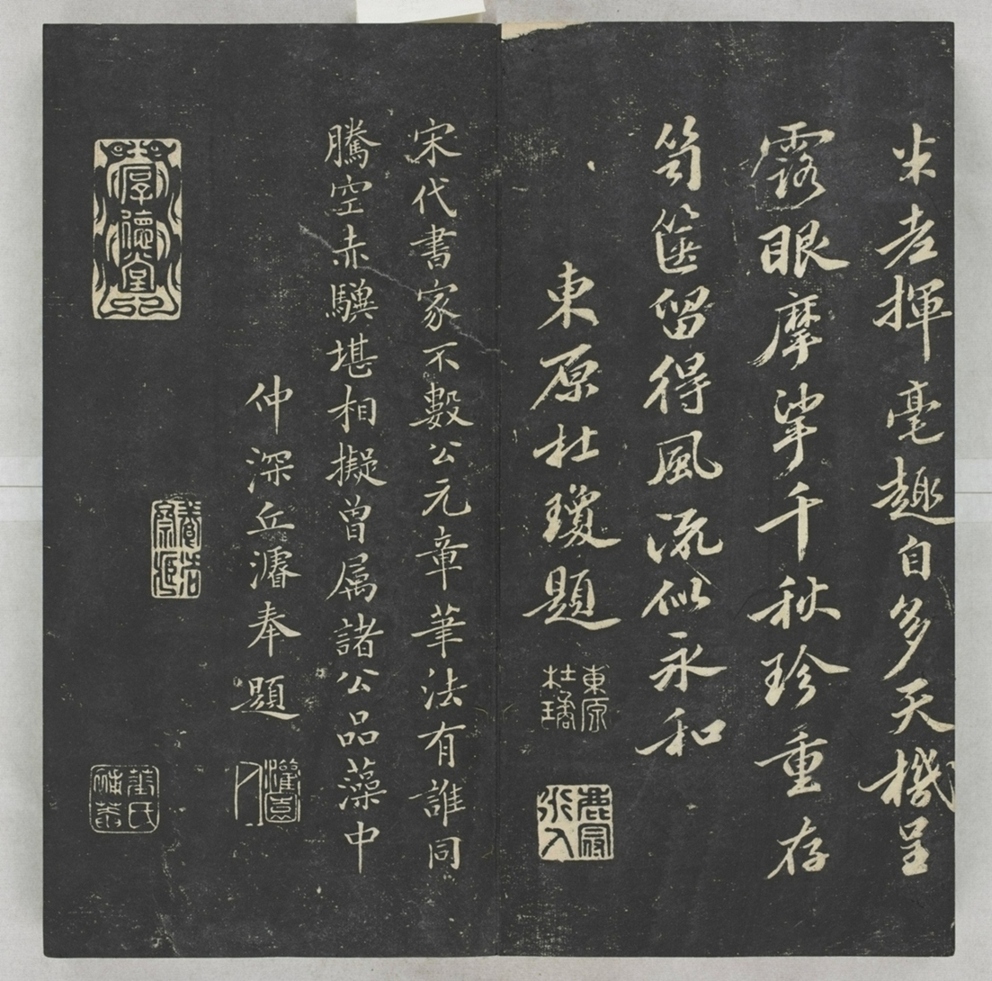 米老揮毫趣自多天機呈
露眼摩挲千秋珍重存
笥箧留得風流似永和
東原杜瓊題
東原
杜瓊
鹿冠
宋代書家不數公元章筆法有誰同
騰空赤驥堪相擬曾属諸公品藻中
仲深丘濬奉題
厚德堂